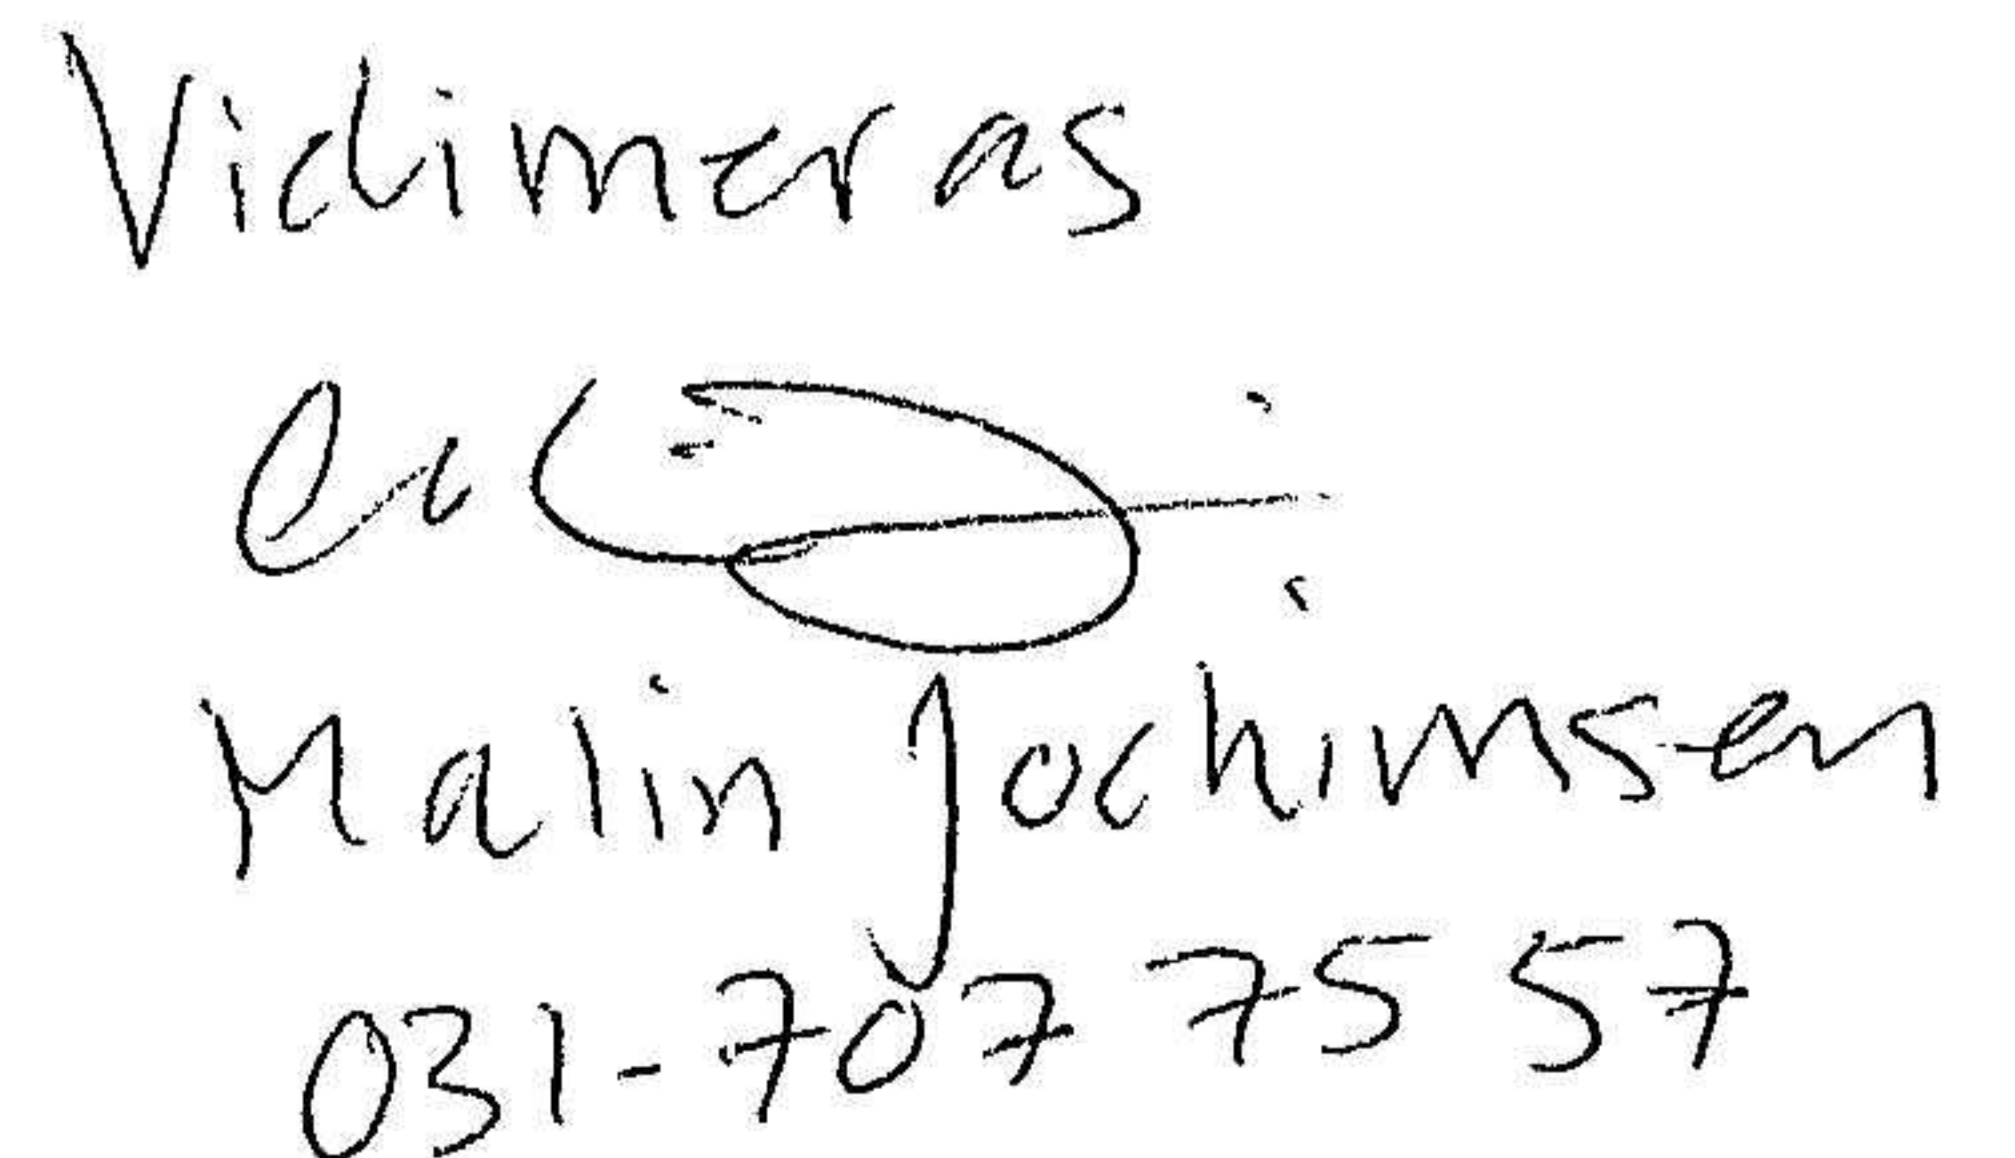 Vidimeras
Malin Jochimsen
031-707 75 57